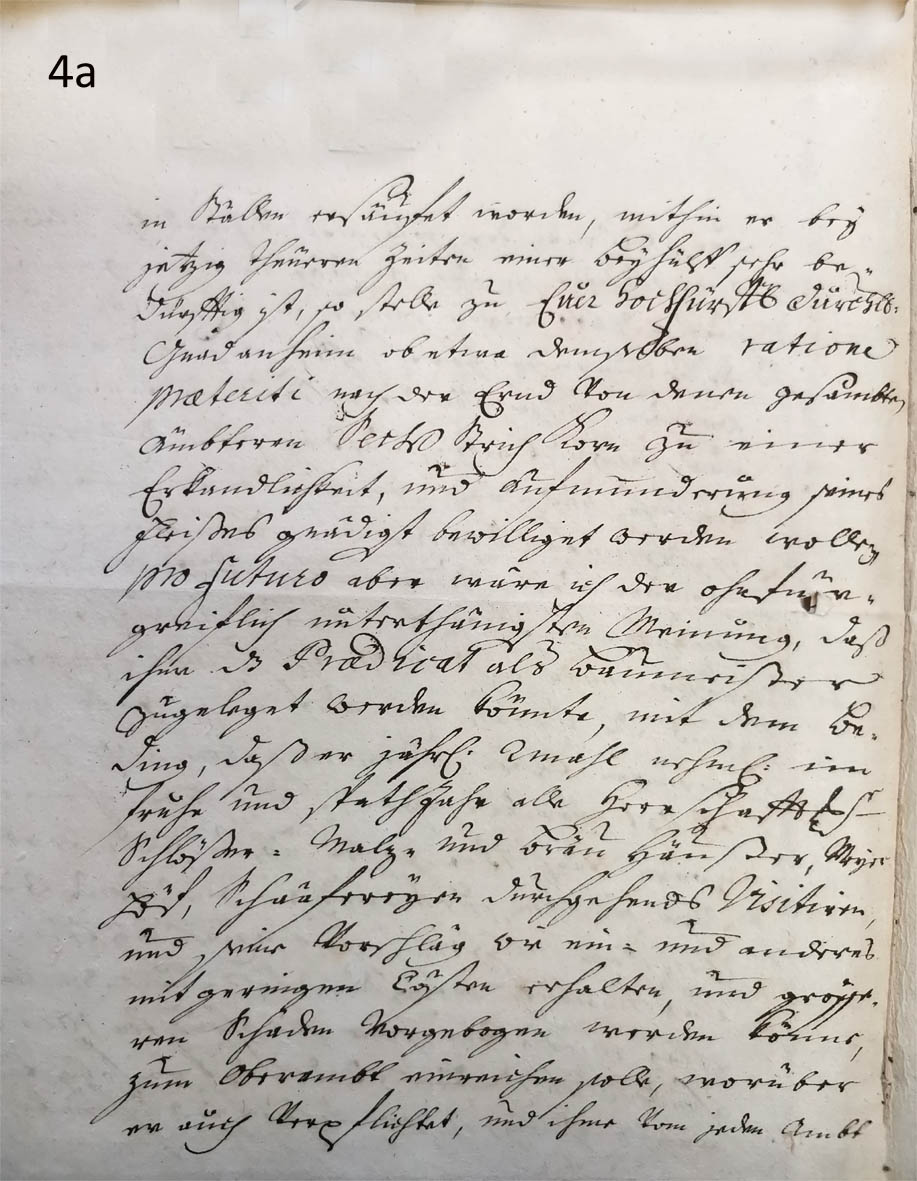 4a
in Ställen ersäuffet worden, mithin er bey
jetzig theueren Zeiten einer Beyhülff sehr be-
dürfftig ist, so stelle zu Euer hochfürstl Durchlt:
Gnad anheim ob etwa demselben ratione
præteriti nach der Ernd von denen gesambten
Ämbteren Sechs Strich Korn zu einer
Erkandlichkeit, und Aufmunderung seines
Fleißes gnädigst bewilliget werden wollen,
pro futuro aber wäre ich der ohnfür-
greiflich unterthänigsten Meinung, daß
ihm das Prædicat als Baumeister
zugeleget werden könnte, mit dem Be-
ding, daß er jährl: 2mahl nehml: im
fruhe und spath Jahr alle Herrschafftl
Schlößer- Malz- und Bräu Häußer, Mayer
Höf, Schaafereyen durchgehends Visitiren,
und seine Vorschläg wie ein- und anderes
mit geringen Cösten erhalten, und größe-
ren Schäden vorgebogen werden könne,
zum Oberambt einreichen solle, worüber
er auch verpflichtet, und ihme vom jeden Ambt